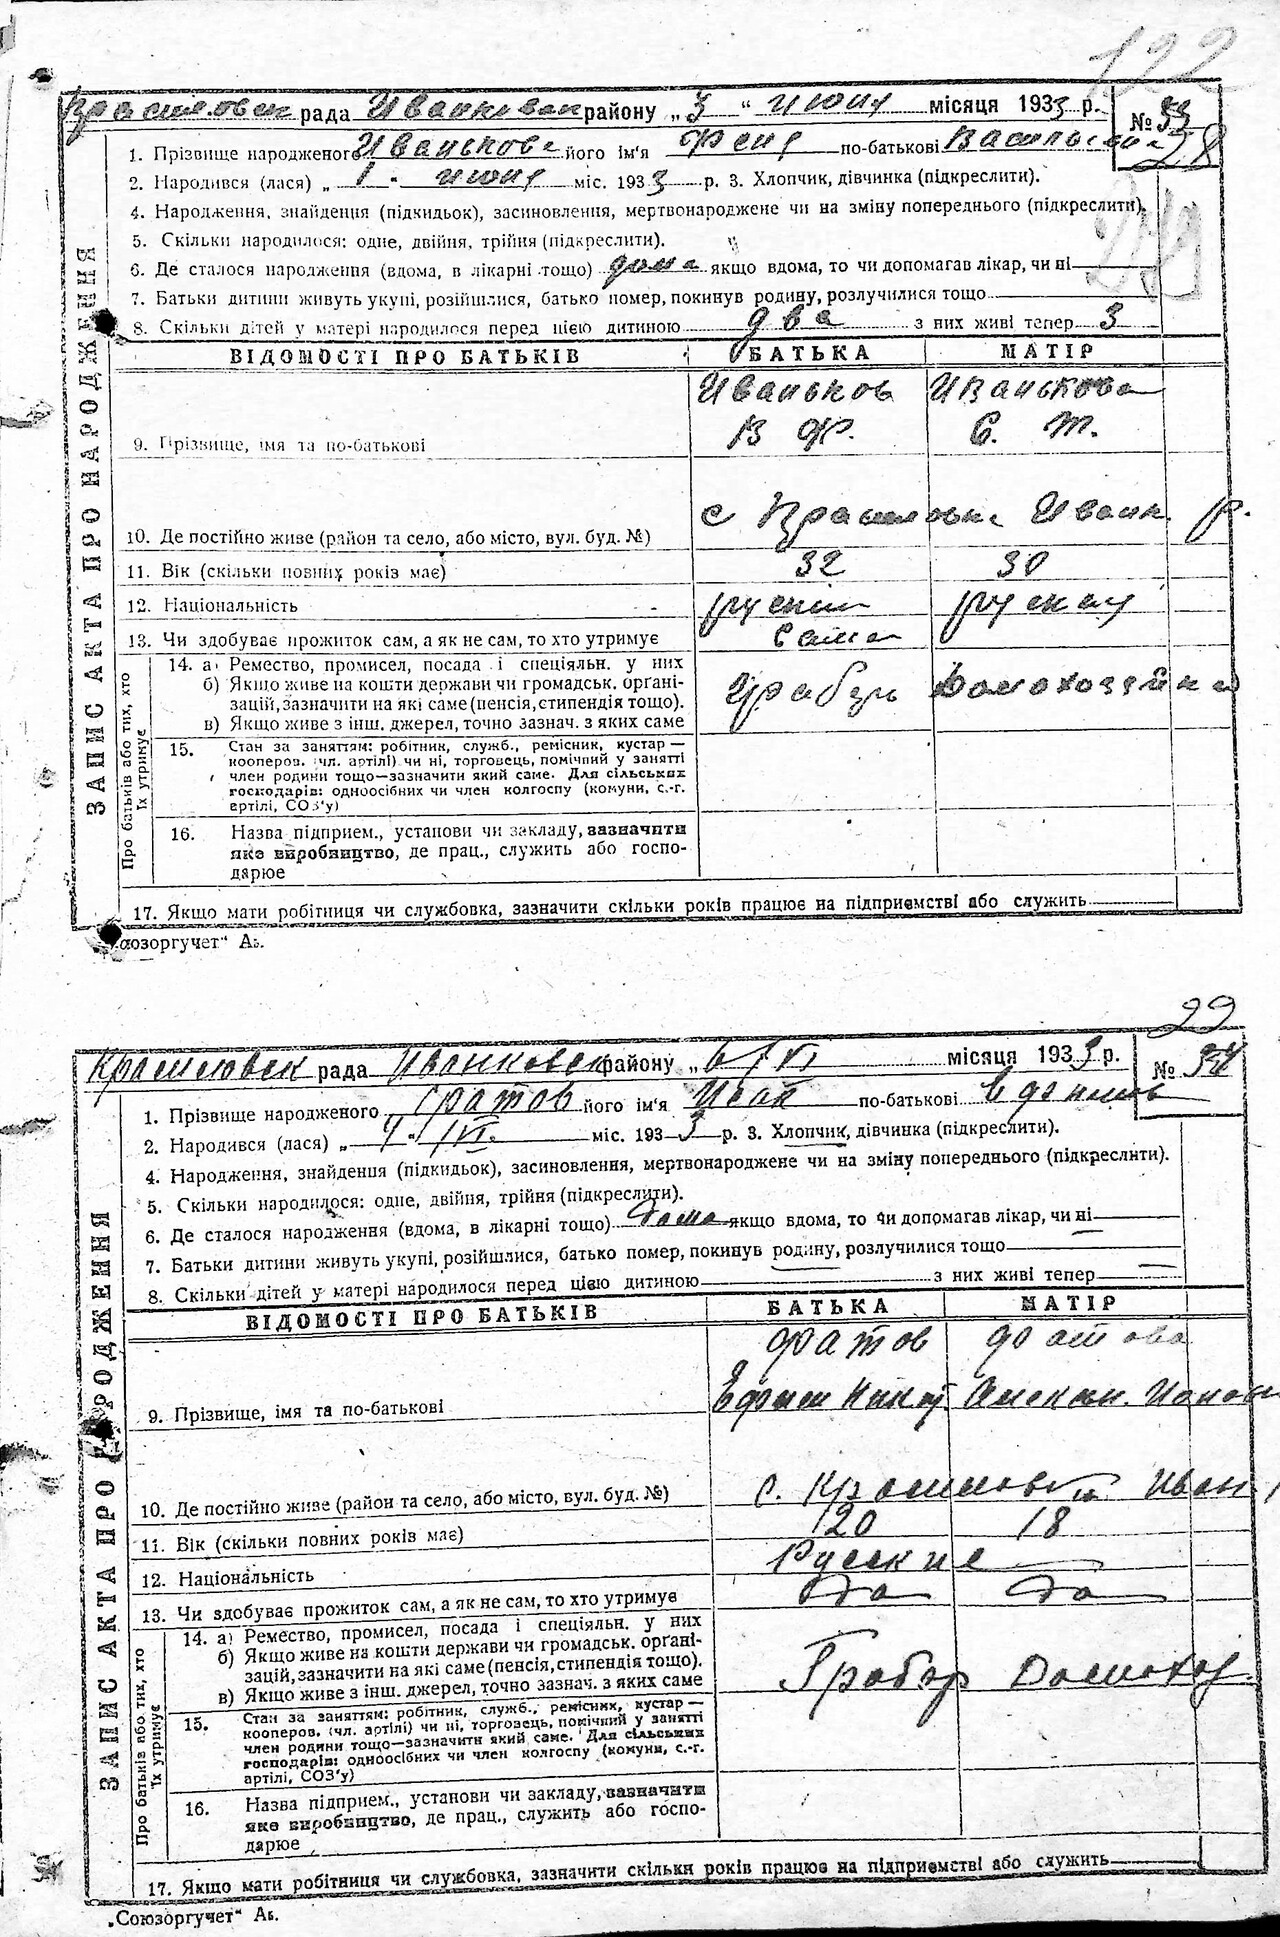 122
Крашловск рада Иванковск району „3" июня місяця 1933 р.
№ 33
28
1. Прізвище народженого Иванькова його ім'я Феня по-батькові Васильевна
2. Народився (лася) „1" июня міс. 1933 р. 3. Хлопчик, дівчинка (підкреслити).
4. Народження, знайдення (підкидьок), засиновлення, мертвонароджене чи на зміну попереднього (підкреслити).
5. Скільки народилося: одне, двійня, трійня (підкреслити).
6. Де сталося народження (вдома, в лікарні тощо) дома якщо вдома, то чи допомагав лікар, чи ні
7. Батьки дитини живуть укупі, розійшлися, батько помер, покинув родину, розлучилися тощо
8. Скільки дітей у матері народилося перед цією дитиною два з них живі тепер 3
ЗАПИС АКТА ПРО НАРОДЖЕННЯ
ВІДОМОСТІ ПРО БАТЬКІВ БАТЬКА МАТІР
Иваньков Иванькова
9. Прізвище, імя та по-батькові В Ф. Е. Т.
10. Де постійно живе (район та село, або місто, вул. буд. №) с Иванк. р.
11. Вік (скільки повних років має) 32 30
12. Національність руский руская
13. Чи здобуває прожиток сам, а як не сам, то хто утримує сами
Про батьків або тих, хто їх утримує
14. а) Ремество, промисел, посада і спеціяльн. у них
б) Якщо живе на кошти держави чи громадськ. орґані-
зацій, зазначити на які саме (пенсія, стипендія тощо). Грабарь Домохозяйка
в) Якщо живе з інш. джерел, точно зазнач. з яких саме
15. Стан за заняттям: робітник, служб., ремісник, кустар —
кооперов. (чл. артілі) чи ні, торговець, помічний у занятті
член родини тощо—зазначити який саме. Для сільських
господарів: одноосібних чи член колгоспу (комуни, с.-г.
артілі, СОЗ'у)
16. Назва підприєм., установи чи закладу, зазначити
яке виробництво, де прац., служить або госпо-
дарює
17. Якщо мати робітниця чи службовка, зазначити скільки років працює на підприємстві або служить
„Союзоргучет" Аь.
29
Крашловск рада Иванковск району „6/VI місяця 1933 р.
№ 34
1. Прізвище народженого Фатов його ім'я по-батькові
2. Народився (лася) „4/VI. міс. 1933 р. 3. Хлопчик, дівчинка (підкреслити).
4. Народження, знайдення (підкидьок), засиновлення, мертвонароджене чи на зміну попереднього (підкреслити).
5. Скільки народилося: одне, двійня, трійня (підкреслити).
6. Де сталося народження (вдома, в лікарні тощо) дома якщо вдома, то чи допомагав лікар, чи ні
7. Батьки дитини живуть укупі, розійшлися, батько помер, покинув родину, розлучилися тощо
8. Скільки дітей у матері народилося перед цією дитиною з них живі тепер
ЗАПИС АКТА ПРО НАРОДЖЕННЯ
ВІДОМОСТІ ПРО БАТЬКІВ БАТЬКА МАТІР
Фатов Фатова
9. Прізвище, імя та по-батькові Ефим Никит
10. Де постійно живе (район та село, або місто, вул. буд. №) с. Иван.
11. Вік (скільки повних років має) 20 18
12. Національність Русские
13. Чи здобуває прожиток сам, а як не сам, то хто утримує да да
Про батьків або тих, хто їх утримує
14. а) Ремество, промисел, посада і спеціяльн. у них
б) Якщо живе на кошти держави чи громадськ. орґані-
зацій, зазначити на які саме (пенсія, стипендія тощо). Грабар Домохоз.
в) Якщо живе з інш. джерел, точно зазнач. з яких саме
15. Стан за заняттям: робітник, служб., ремісник, кустар —
кооперов. (чл. артілі) чи ні, торговець, помічний у занятті
член родини тощо—зазначити який саме. Для сільських
господарів: одноосібних чи член колгоспу (комуни, с.-г.
артілі, СОЗ'у)
16. Назва підприєм., установи чи закладу, зазначити
яке виробництво, де прац., служить або госпо-
дарює
17. Якщо мати робітниця чи службовка, зазначити скільки років працює на підприємстві або служить
„Союзоргучет" Аь.